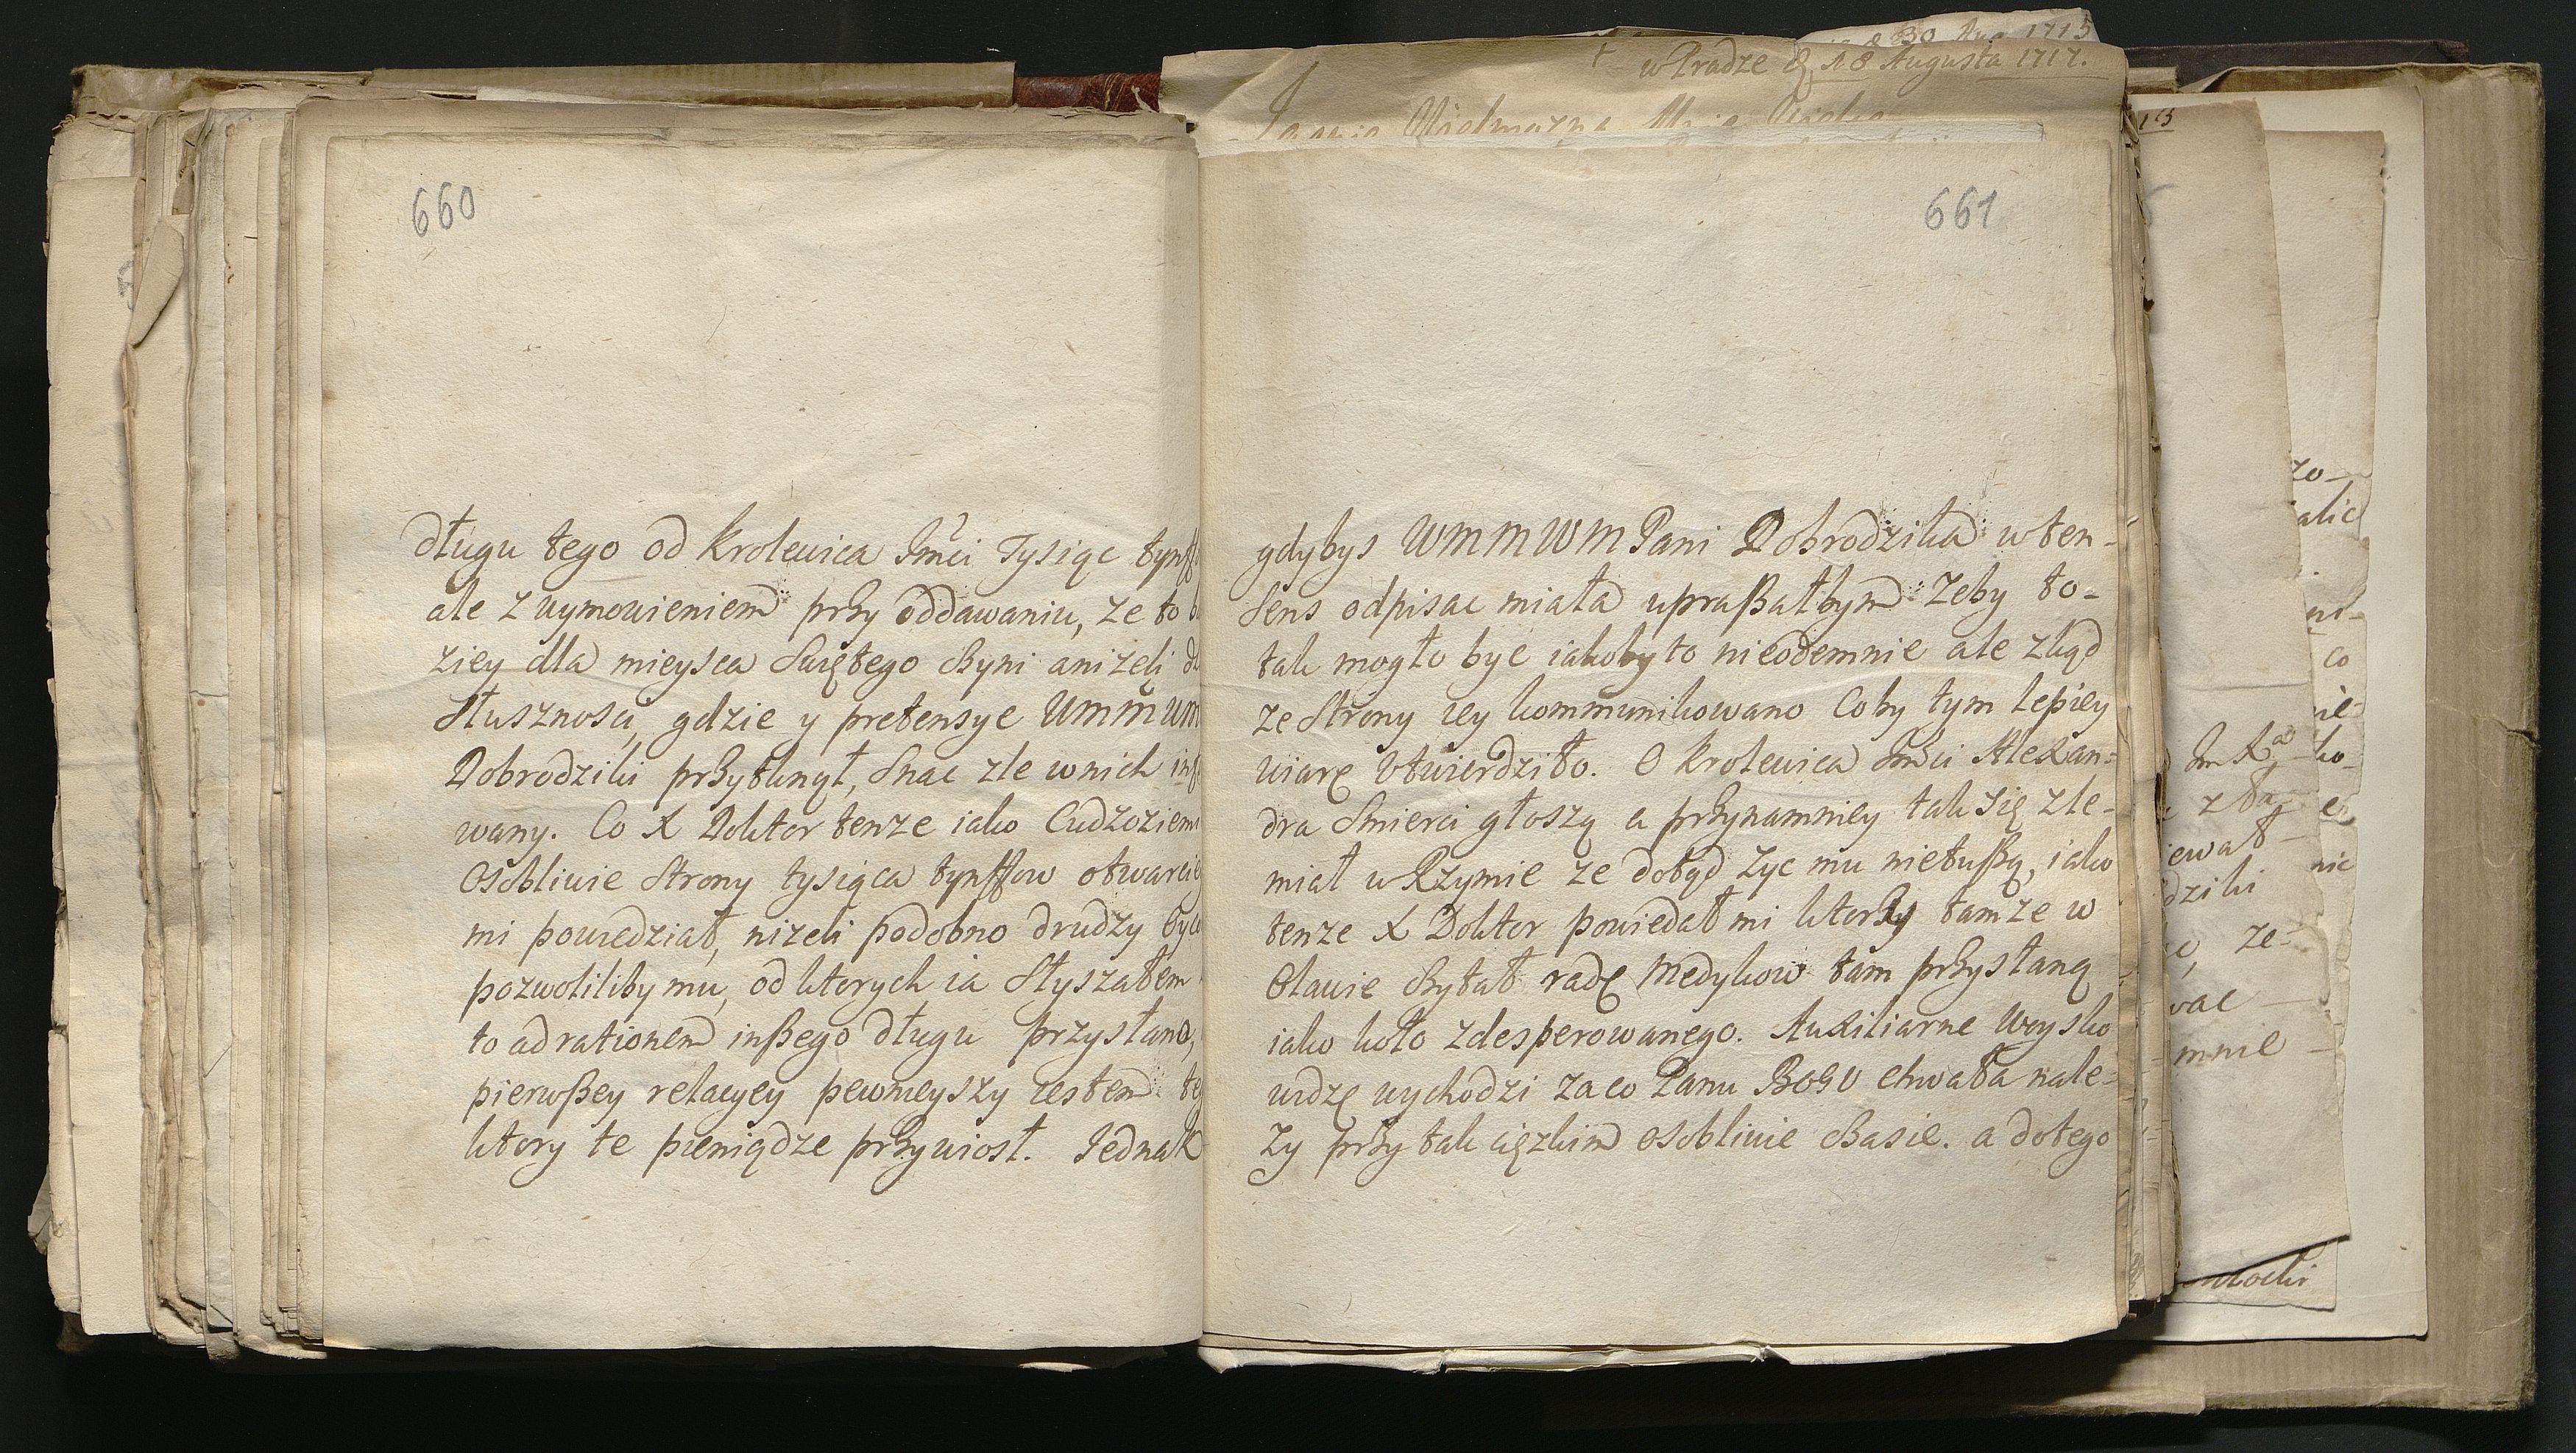 660
długu tego od Krolewica Jmci Tysiąc
ale z wymowieniem przy oddawaniu, ze to
ziey dla mieysca Swiętego czyni anizeli
Słusznosci, gdzie y pretensye WMMWM
Dobrodziki przytknął, Snac zle wnich
wany. Co X Doktor tenze iako
Osobliwie Strony tysiąca tynffow otwarcie
mi powiedział, nizeli podobno drudzy
pozwoliliby mu, od ktorych ia Słyszałem
to ad rationem inßego długu przysłano,
pierwßey relacyey pewnieyszy iestem
ktory te pieniądze przywiosł. Jednak
w Pradze d 18 Augusta 1717.
661
gdybys WMMWM Pani Dobrodzika wten-
Sens odpisac miała upraßałbym Zeby to-
tak mogło byc iakoby to nieodemnie ale zkąd
ze Strony iey kommunikowano Coby tym lepiey
wiarę Utwierdziło. O Krolewica Jmci Alexan=
dra Smierci głoszą a przynamniey tak się zle-
miał w Rzymie ze dotąd zyc mu nietußą, iako
tenze X Doktor powiedał mi ktory tamze w
Oławie czytał radę Medykow tam przysłaną
iako koło zdesperowanego. Auxiliarne Woysko
widzę wychodzi za co Panu BOGU chwała nale=
zy przy tak cięzkim osobliwie czasie. a dotego
30 Aug 1715